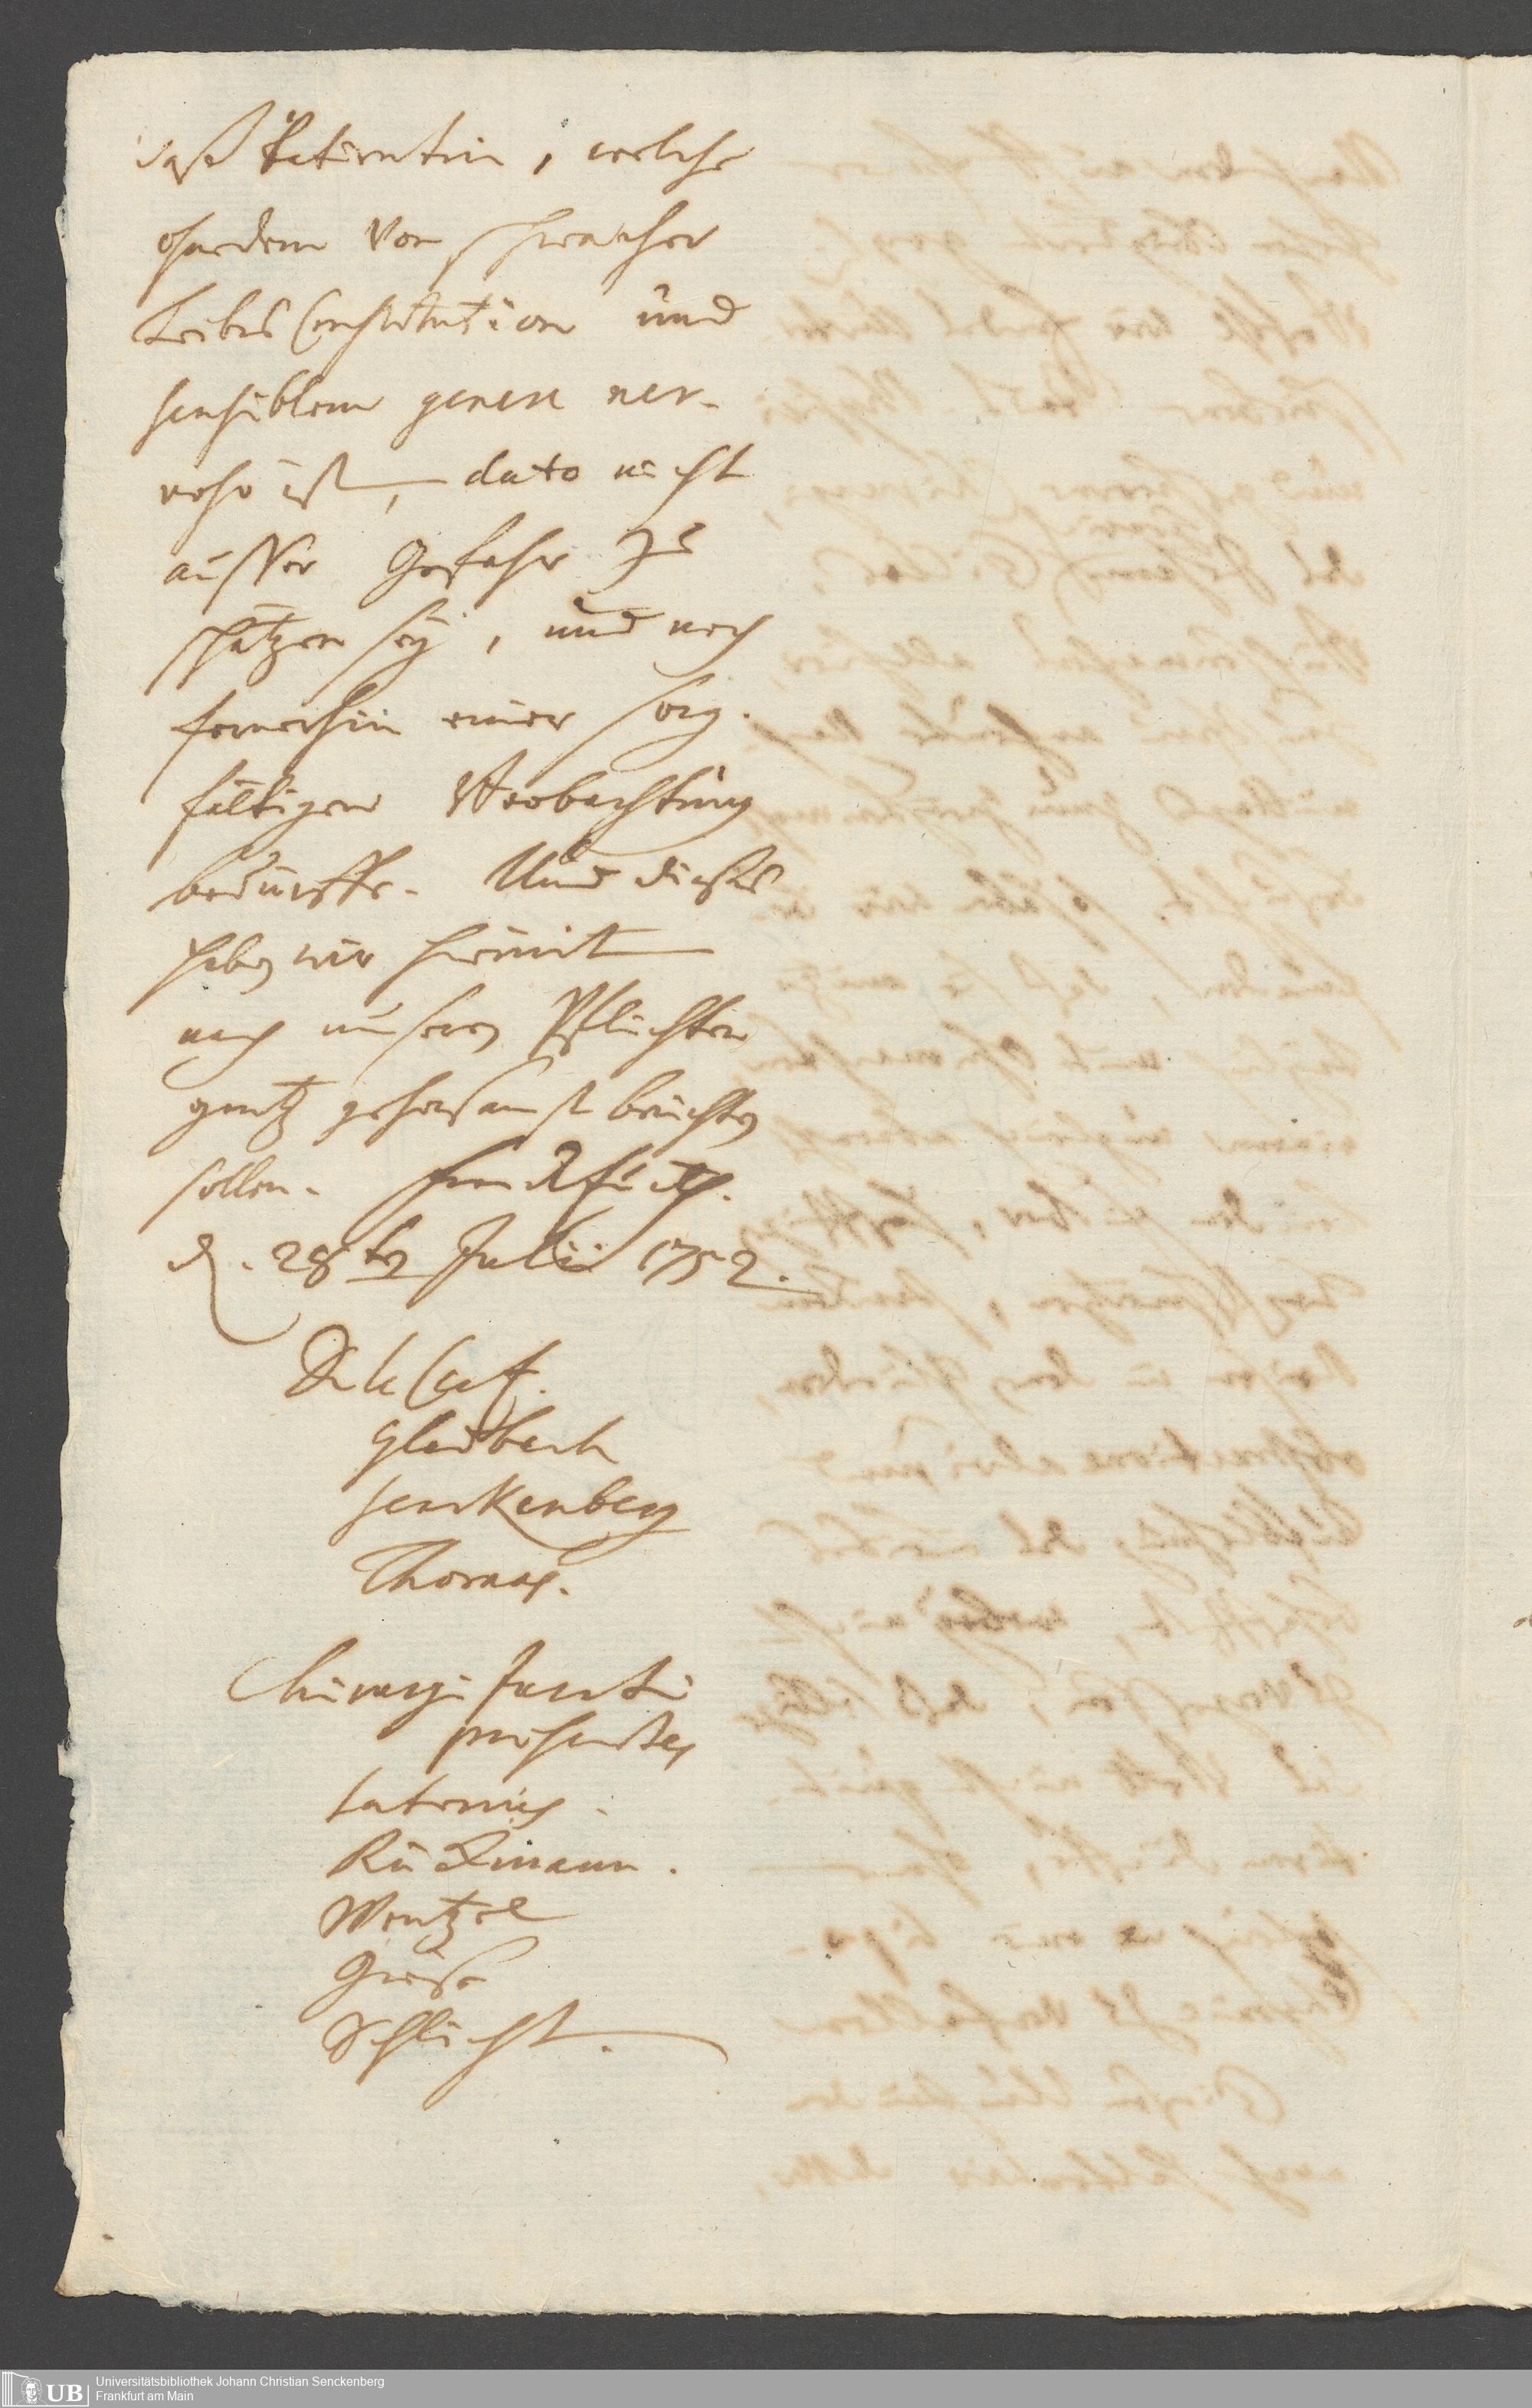 daß Patientin, welche
ohnedem von schwacher
Leibes Constitution und
sensiblem genere ner-
voso ist, dato nicht
ausser Gefahr zu
schätzen seÿ, und noch
fernerhin einer sorg-
fältigen Beobachtung
bedürffe. Und dieses
haben wir hiemit
nach unseren Pflichten
gantz gehorsamst berichten
sollen. Franckfurth.
d. 28ten Julii 1752.
Gladbach
Senckenberg
Thomas.
Chirurgi Jurati
praesentes
Laternus.
Rückmann.
Wentzel
Griesse
Schlicht.
Universitätsbibliothek Johann Christian Senckenberg
Frankfurt am Main
UB